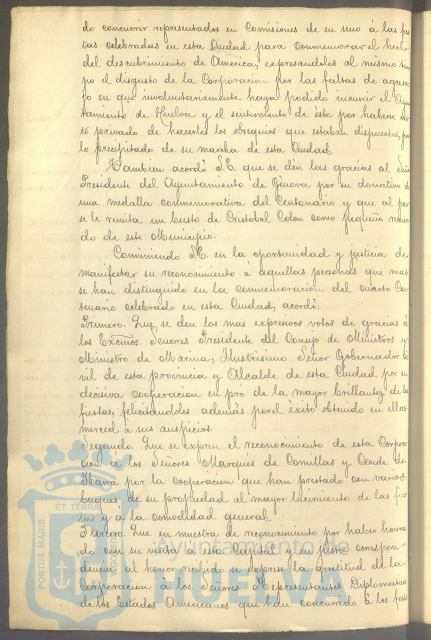 do concurrir representados en Comisiones de su seno á las fies
tas celebradas en esta Ciudad para conmemorar el hecho
del descubrimiento de America, expresandoles al mismo tiem
po el disgusto de la Corporacion por las faltas de agasa
jo en que involuntariamente haya podido incurrir el Ayun
tamiento de Huelva y el sentimiento de este por haberse vis
to privado de hacerles los obsequios que estaban dispuestos, por
lo precipitado de su marcha de esta Ciudad.
Tambien acordó S.E. que se dén las gracias al Señor
Presidente del Ayuntamiento de Génova por su donativo de
una medalla conmemorativa del Centenario y que al par
se le remita un busto de Cristobal Colon como pequeño recuer
do de este Municipio.
Conviniendo S.E. en la oportunidad y justicia de
manifestar su reconocimiento á aquellas personas que mas
se han distinguido en la conmemoracion del cuarto Cen
tenario celebrado en esta Ciudad, acordó:
Primero. Que se den los mas expresivos votos de gracias á
los Excmos. Señores Presidente del Consejo de Ministros y
Ministro de Marina, Ilustrisimo Señor Gobernador Ci
vil de esta provincia y Alcalde de esta Ciudad por su
decisiva cooperacion en pro de la mayor brillantez de las
fiestas, felicitandoles además por el éxito obtenido en ellas
merced á sus auspicios.
Segundo. Que se exprese el reconocimiento de esta Corpora
cion á los Señores Marqués de Comillas y Conde de
Ibarra por la cooperacion que han prestado con varios
buques de su propiedad al mayor lucimiento de las fies
tas y á la comodidad general.
Tercero. Que en muestra de reconocimiento por haber honra
do con su visita á esta Capital y en justa correspon-
dencia al honor recibido se exprese la gratitud de la
Corporacion á los Señores Representantes Diplomaticos
de los Estados Americanos que han concurrido á las fies
PORTUS MARIS ET TERRAE
Ayuntamiento de
HUELVA